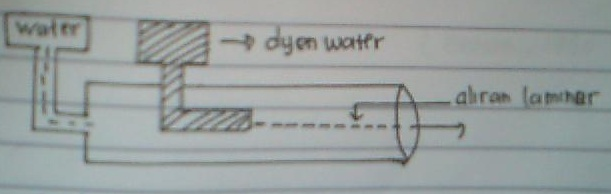 water
dyen water
aliran laminer